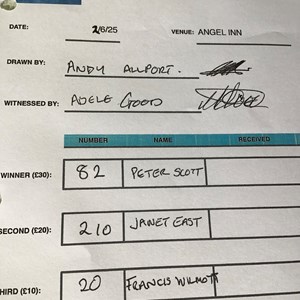 DATE: 2/6/25 VENUE: ANGEL INN
DRAWN BY: ANDY ALLPORT.
WITNESSED BY: ADELE GOODS
NUMBER NAME RECEIVED
WINNER (£30): 82 PETER SCOTT
SECOND (£20): 210 JANET EAST
HIRD (£10): 20 FRANCIS WILMOTT